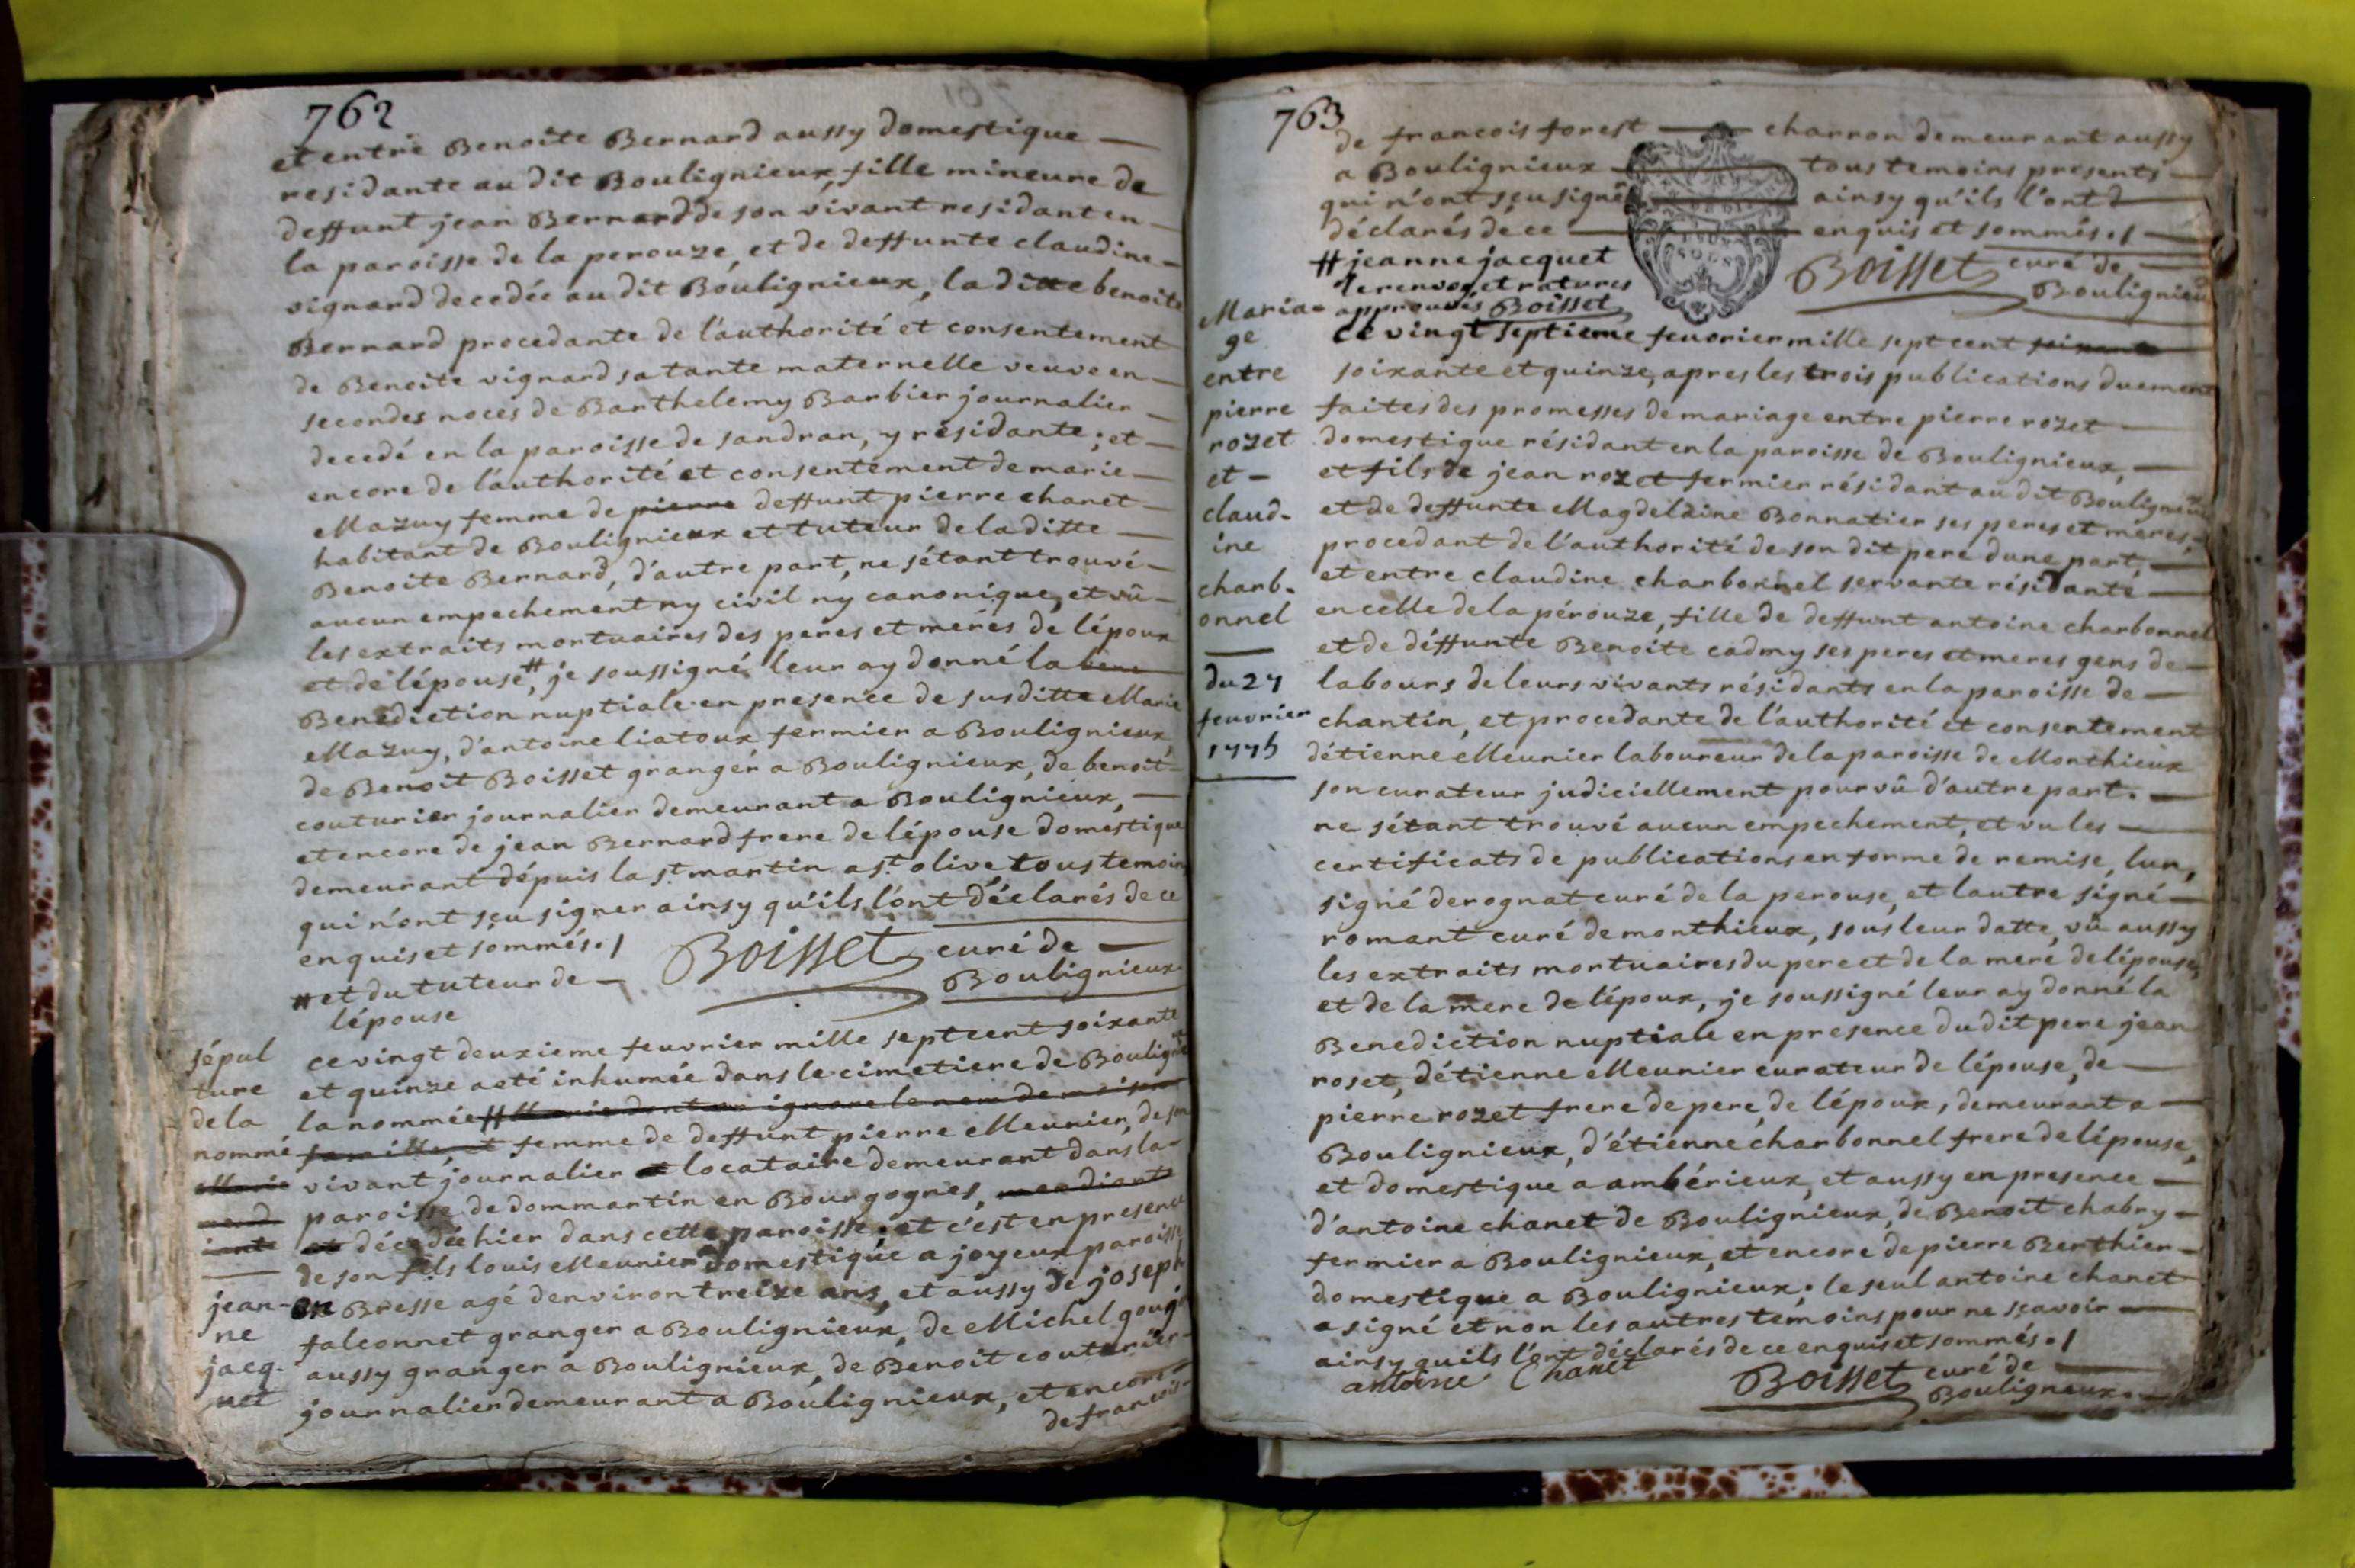 762
et entre Benoite Bernard aussy domestique
residante au dit Boulignieux, fille mineure de
deffunt jean Bernard de son vivant residant en
la paroisse de la perouze, et de deffunte claudine
vignard decedée au dit Boulignieux, la ditte benoite
Bernard procedante de l'authorité et consentement
de Benoite vignard sa tante maternelle veuve en
secondes noces de Barthelemy Barbier journalier
decedé en la paroisse de sandran, y residante; et
encore de l'authorité et consentement de marie
Mazuy femme de pierre deffunt pierre chanet
habitant de Boulignieux et tuteur de la ditte
Benoite Bernard, d'autre part, ne s'étant trouvé
aucun empechement ny civil ny canonique, et vû
les extraits mortuaires des peres et meres de l'époux
et de l'épouse #, je soussigné leur ay donné la bene
Benediction nuptiale en presence de susditte Marie
Mazuy, d'antoine liatoux fermier a Boulignieux,
de Benoit Boisset granger a Boulignieux, de benoit
couturier journalier demeurant a Boulignieux,
et encore de jean Bernard frere de l'épouse domestique
demeurant dépuis la st. martin a st. olive, tous temoins
qui n'ont sçu signer ainsy qu'ils l'ont déclarés de ce
enquis et sommés./ Boisset curé de
Boulignieux
# et du tuteur de
l'épouse
sépul
ture
de la
nommé
Marie
mend
iante
jean-
ne
jacq-
uet
ce vingt deuxieme feuvrier mille sept cent soixante
et quinze a eté inhumée dans le cimetiere de Boulignieux
la nommée # Marie dont on ignore le nom de maison
famille, et femme de deffunt pierre Meunier, de son
vivant journalier et locataire demeurant dans la
paroisse de dommartin en Bourgognes, mendiante
et décedée hier dans cette paroisse, et c'est en presence
de son fils louis Meunier domestique a joyeux paroisse
en Bresse agé d'environ treize ans, et aussy de joseph
falconnet granger a Boulignieux, de Michel
aussy granger a Boulignieux, de Benoit couturier
journalier demeurant a Boulignieux, et encore
de francois
763
de francois forest charron demeurant aussy
a Boulignieux tous temoins presents
qui n'ont sçu signé ainsy qu'ils l'ont d
déclarés de ce enquis et sommés./
# jeanne jacquet
le renvoy et ratures
approuvés Boisset
Boisset curé de
Boulignieux
Maria-
ge
entre
pierre
rozet
et
claud-
ine
charb-
onnel
du 27
feuvrier
1775
ce vingt septieme feuvrier mille sept cent soixante
soixante et quinze, apres les trois publications duement
faites des promesses de mariage entre pierre rozet
domestique résidant en la paroisse de Boulignieux,
et fils de jean rozet fermier résidant au dit Boulignieux
et de deffunte Magdelaine Bonnatier ses peres et meres,
procedant de l'authorité de son dit pere d'une part,
et entre claudine charbonnel servante résidante
en celle de la pérouze, fille de deffunt antoine charbonnel
et de déffunte Benoite cadmy ses peres et meres gens de
labours de leurs vivants résidants en la paroisse de
chantin, et procedante de l'authorité et consentement
d'étienne Meunier laboureur de la paroisse de Monthieux
son curateur judiciellement pourvû d'autre part.
ne s'étant trouvé aucun empechement, et vu les
certificats de publications en forme de remise, l'un,
signé derognat curé de la perouse, et l'autre signé
romant curé de monthieux, sous leur datte, vû aussy
les extraits mortuaires du pere et de la mere de l'épouse,
et de la mere de l'époux, je soussigné leur ay donné la
Benediction nuptiale en presence du dit pere jean
roset, d'étienne Meunier curateur de l'épouse, de
pierre rozet frere de pere, de l'époux, demeurant a
Boulignieux, d'étienne charbonnel frere de l'épouse,
et domestique a ambérieux, et aussy en presence
d'antoine chanet de Boulignieux, de Benoit chabry
fermier a Boulignieux, et encore de pierre Berthier
domestique a Boulignieux. le seul antoine chanet
a signé et non les autres temoins pour ne sçavoir
ainsy qu'ils l'ont déclarés de ce enquis et sommés./
antoine Chanet
Boisset curé de
Boulignieux.